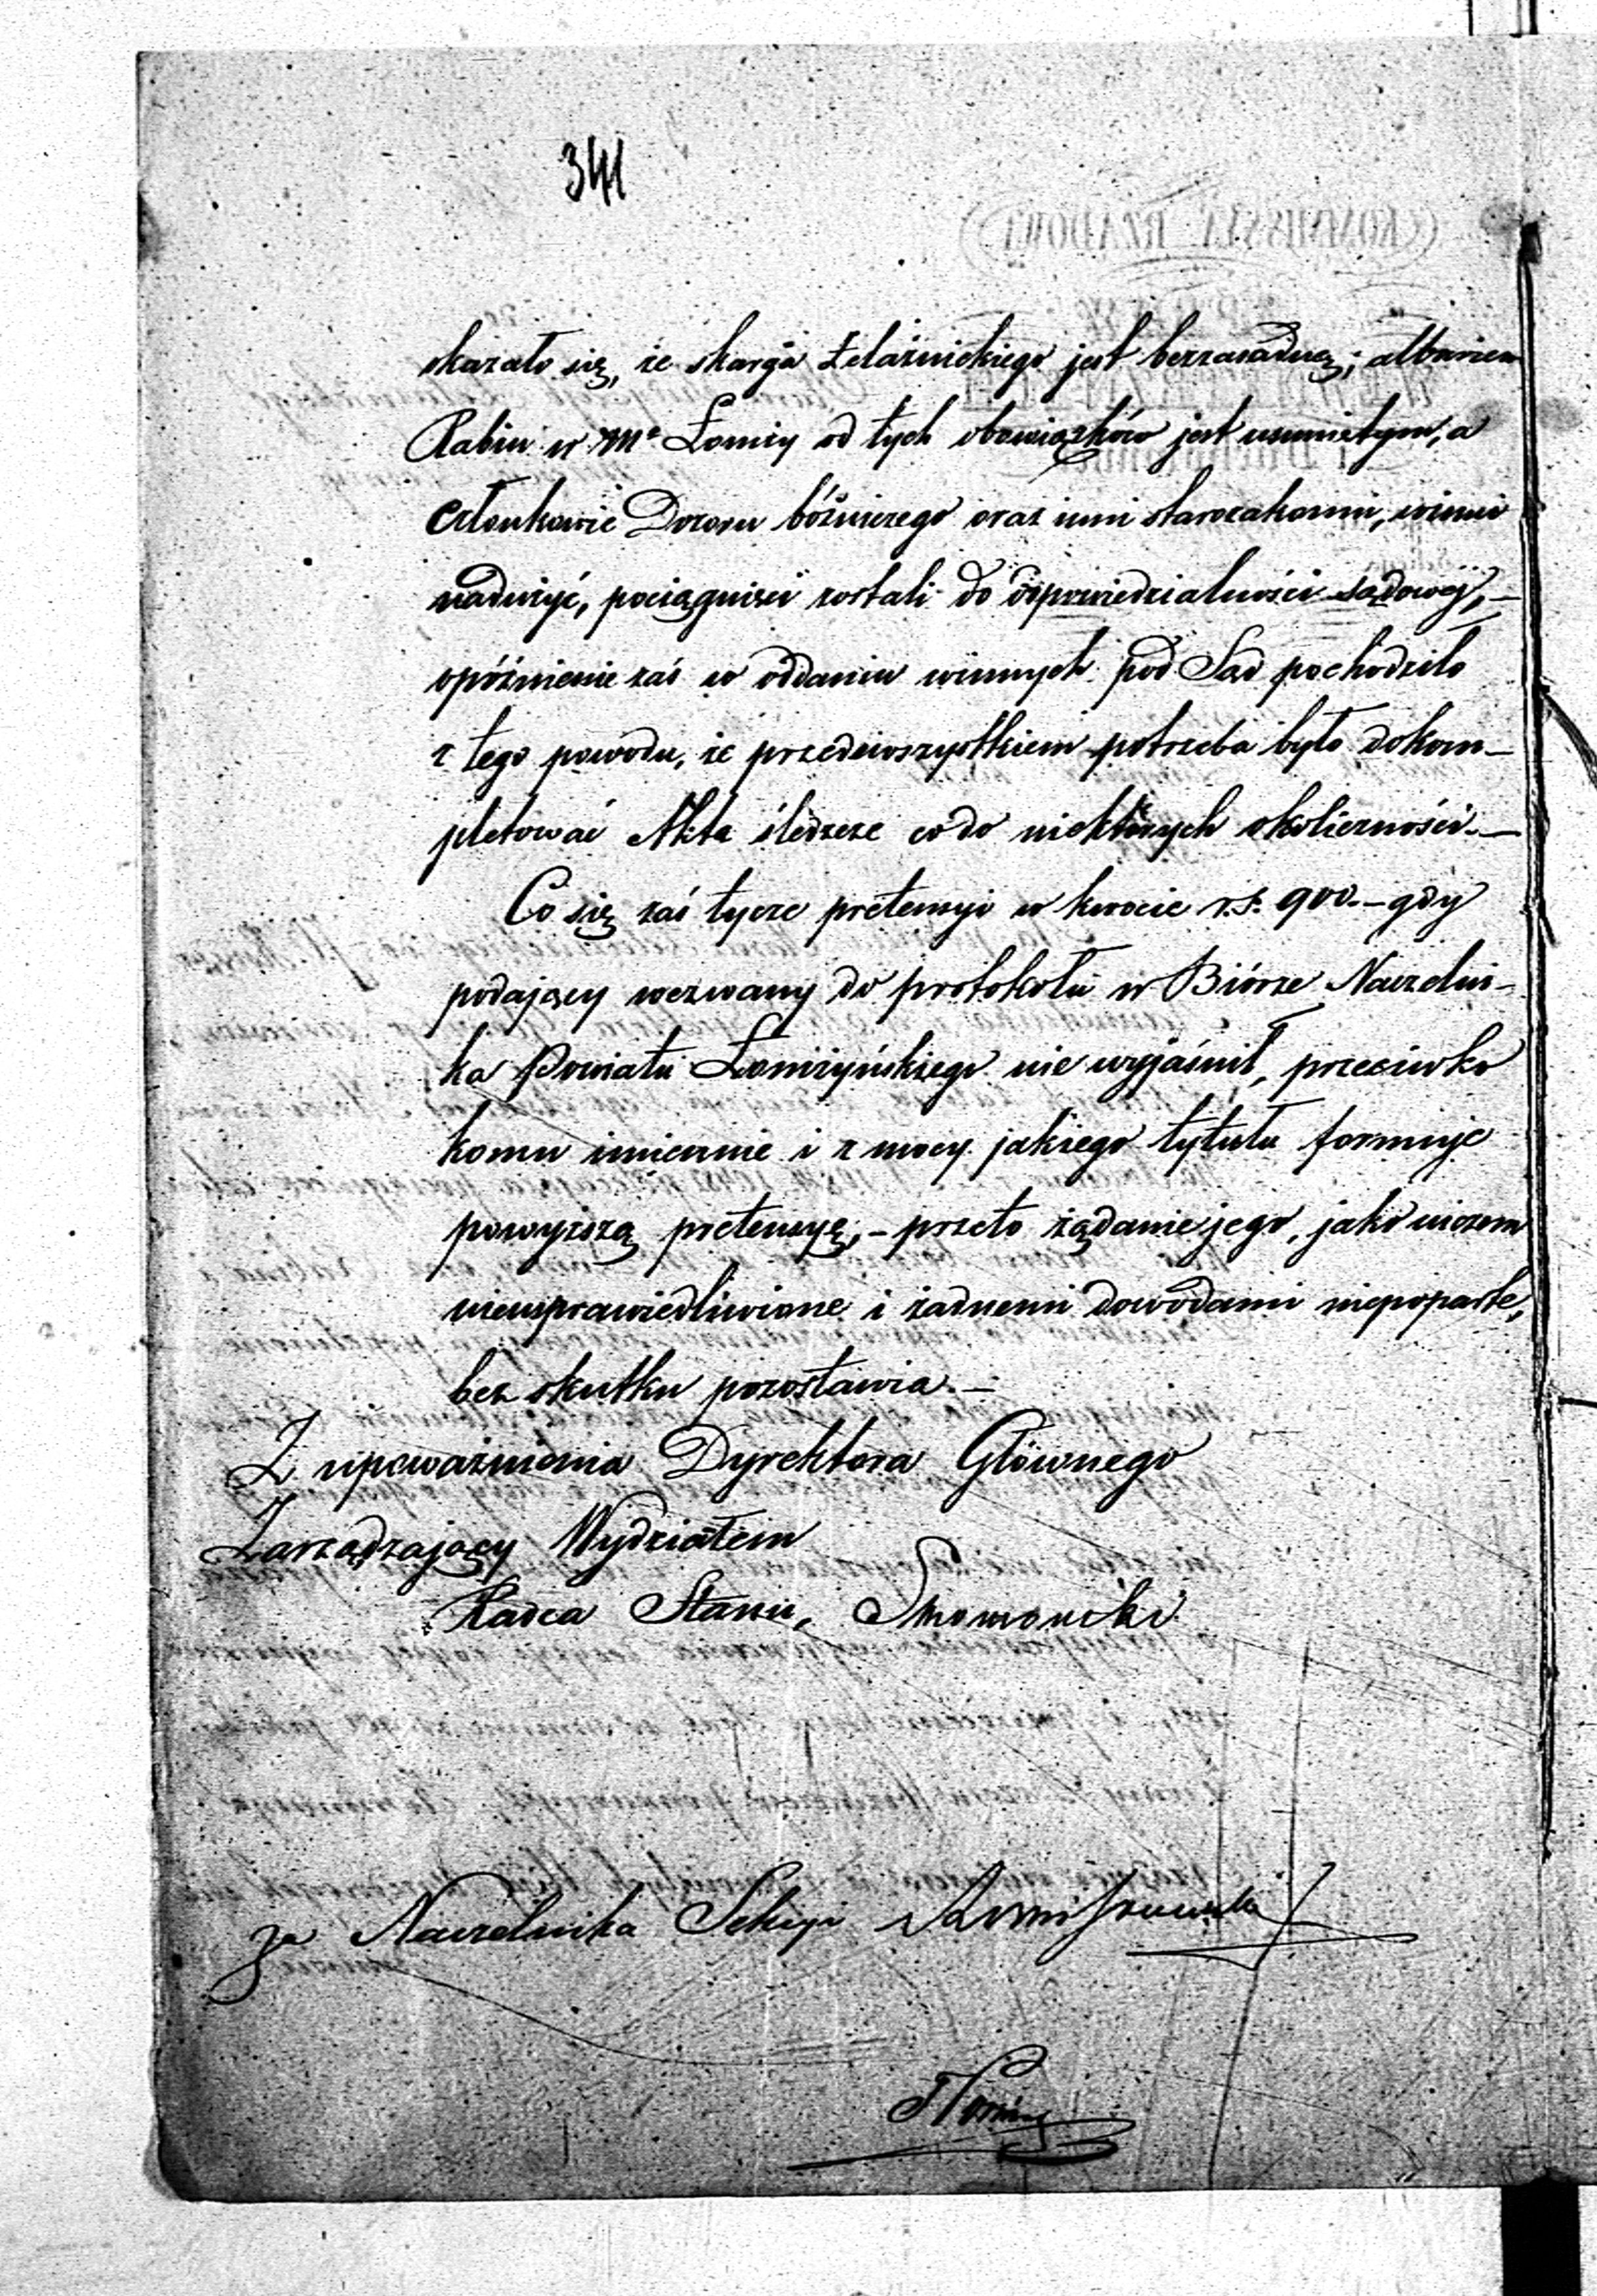 341
okazało się, że skarga Żelaźnickiego jest bezzasadną; albowiem
Rabin w Me Łomży od tych obowiązków jest usuniętym, a
Członkowie Dozoru bóżniczego oraz inni starozakonni, winni
nadużyć, pociągnięci zostali do odpowiedzialności sądowéj, —
opóźnienie zaś w oddaniu winnych pod Sąd pochodziło
z tego powodu, że przedewszystkiem potrzeba było dokom—
pletować Akta śledcze co do niektórych okoliczności. —
Co się zaś tycze pretensyi w kwocie r.s. 900. — gdy
podający wezwany do protokołu w Biórze Naczelni-
ka Powiatu Łomżyńskiego nie wyjaśnił, przeciwko
komu imiennie i z mocy jakiego tytułu formuje
powyższą pretensyę; — przeto żądanie jego, jako niczem
nieusprawiedliwione i żadnemi dowodami niepoparte,
bez skutku pozostawia. —
Z upoważnienia Dyrektora Głównego
Zarządzający Wydziałem
Radca Stanu,
za Naczelnika Sekcyi